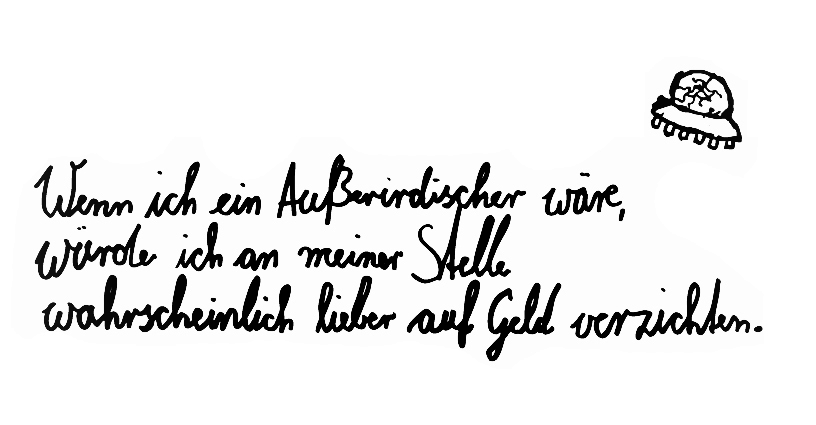 Wenn ich ein Außerirdischer wäre,
würde ich an meiner Stelle
wahrscheinlich lieber auf Geld verzichten.